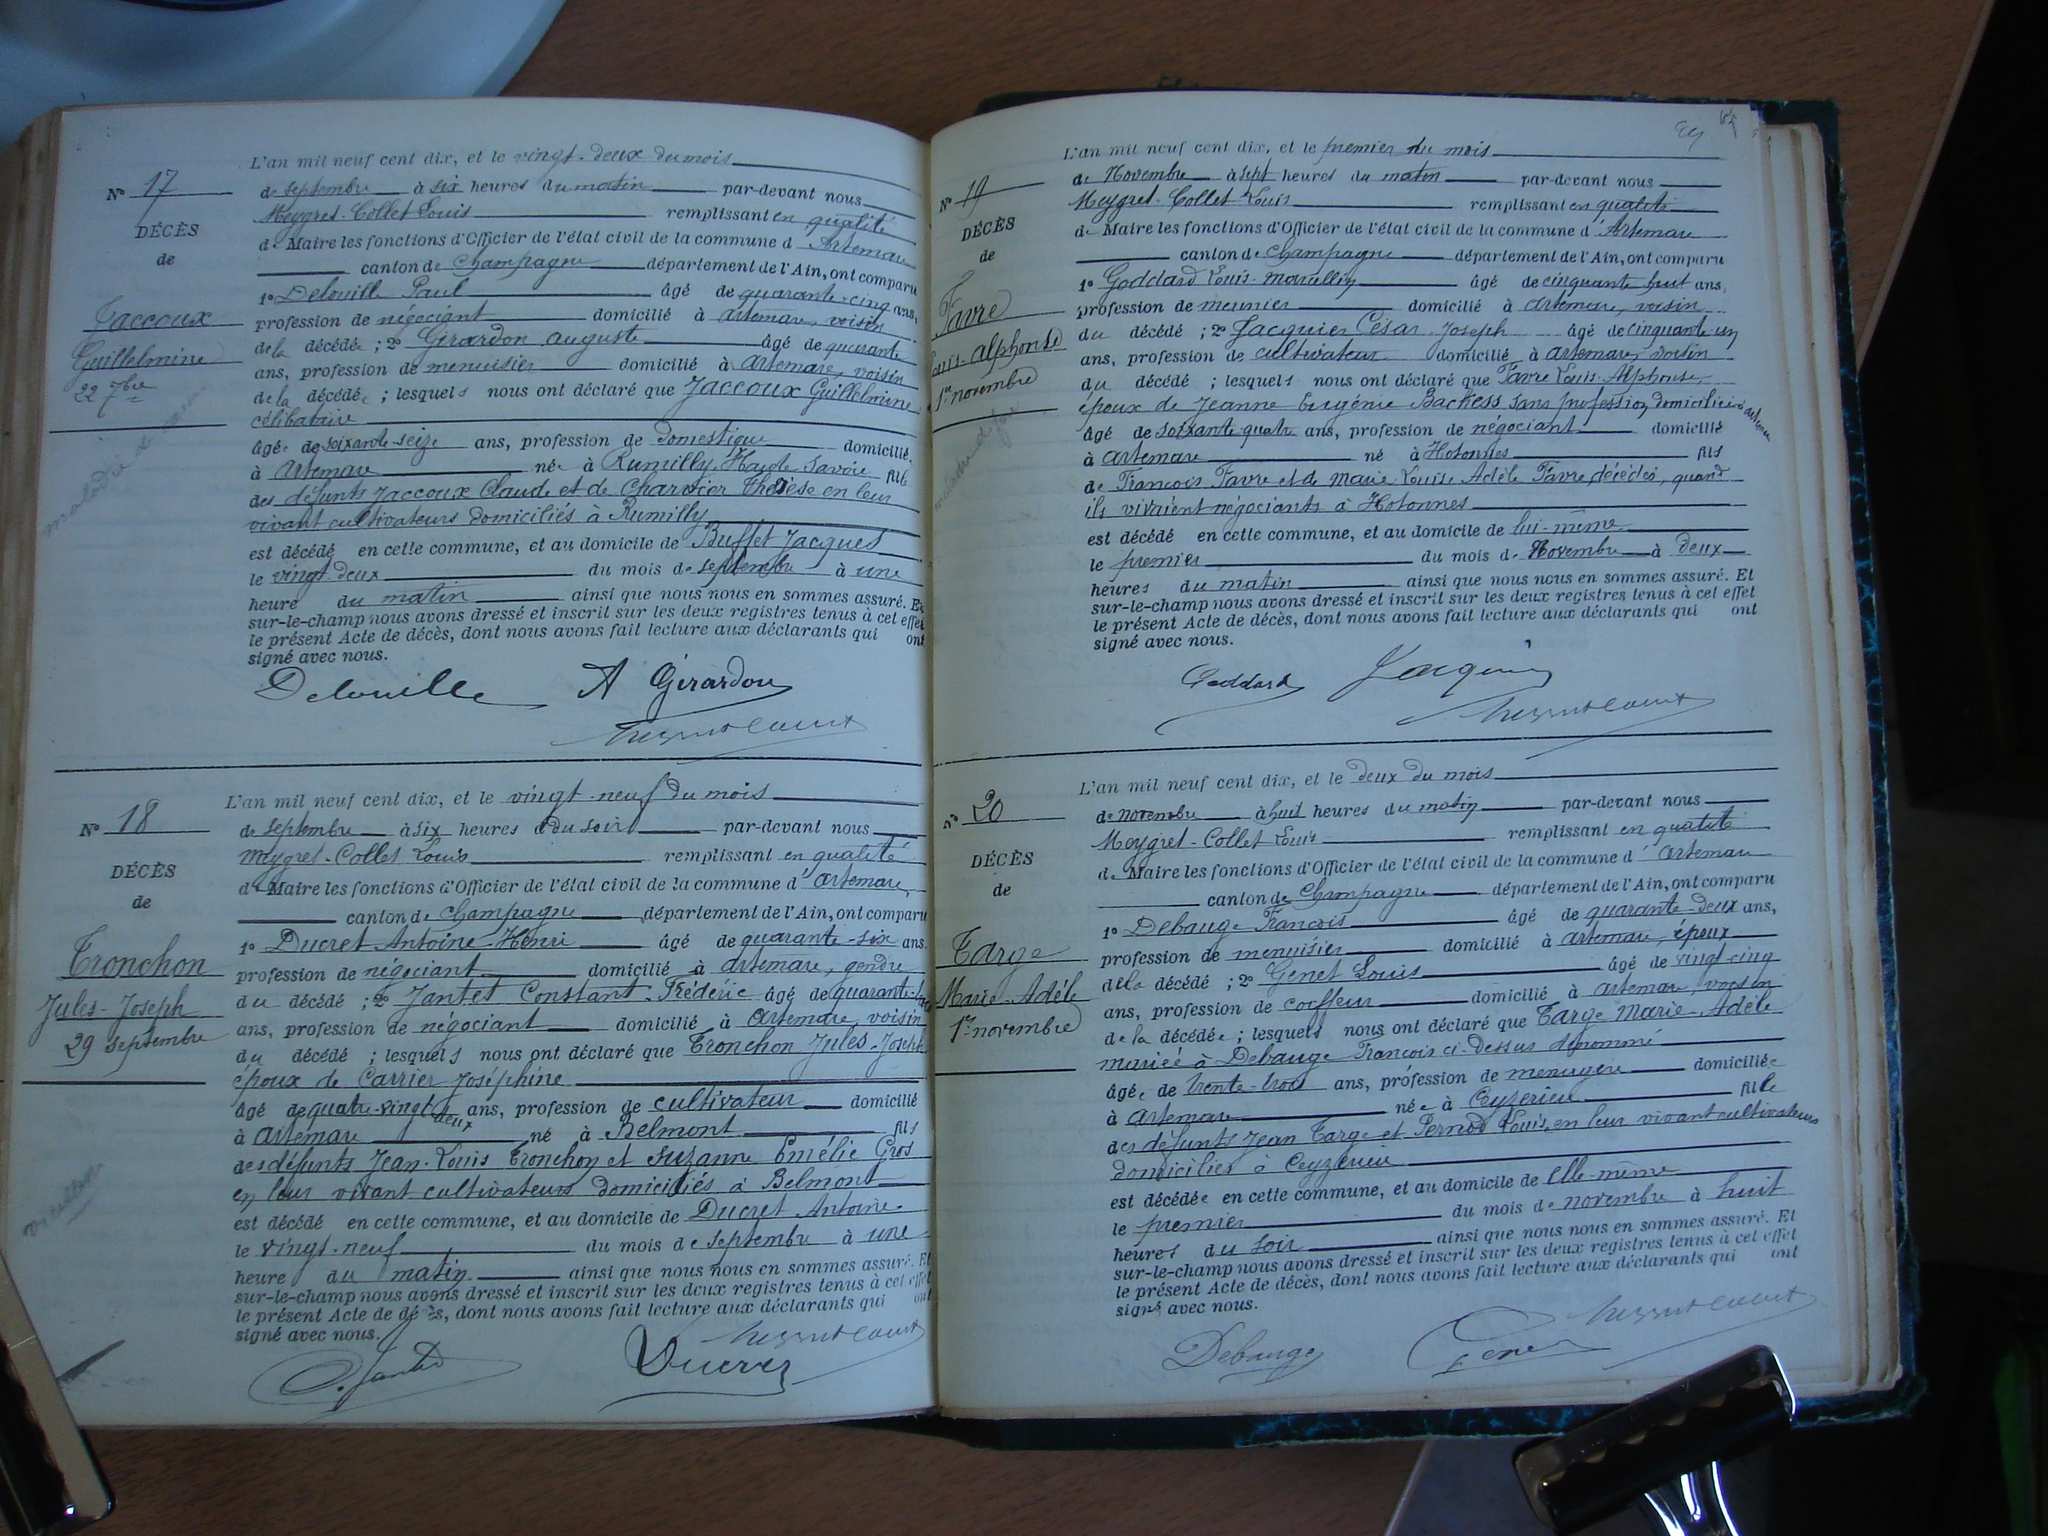 L'an mil neuf cent dix, et le vingt-deux du mois
N° 17
de septembre à six heures du matin par-devant nous
Meygret-Collet Louis remplissant en qualité
DÉCÈS
de Maire les fonctions d'Officier de l'état civil de la commune d'Artemare
de
canton de Champagne département de l'Ain, ont comparu
1° Delouille Paul âgé de quarante-cinq ans,
Jaccoux
profession de négociant domicilié à Artemare, voisin
de la décédée ; 2° Girardon Auguste âgé de quarante
Guillelmine
ans, profession de menuisier domicilié à Artemare, voisin
22 7bre
de la décédée ; lesquels nous ont déclaré que Jaccoux Guillelmine
célibataire
âgée de soixante-seize ans, profession de domestique domiciliée
à Artemare née à Rumilly, Haute Savoie fille
maladie de
des défunts Jaccoux Claude et de Charvier Thérèse en leur
vivant cultivateurs domiciliés à Rumilly
est décédé en cette commune, et au domicile de Buffet Jacques
le vingt deux du mois de septembre à une
heure du matin ainsi que nous nous en sommes assuré. Et
sur-le-champ nous avons dressé et inscrit sur les deux registres tenus à cet effet
le présent Acte de décès, dont nous avons fait lecture aux déclarants qui ont
signé avec nous.
Delouille A Girardon
L'an mil neuf cent dix, et le vingt-neuf du mois
N° 18
de septembre à six heures du soir par-devant nous
Meygret-Collet Louis remplissant en qualité
DÉCÈS
de Maire les fonctions d'Officier de l'état civil de la commune d'Artemare,
de
canton de Champagne département de l'Ain, ont comparu
1° Ducret Antoine-Henri âgé de quarante-six ans.
Tronchon
profession de négociant domicilié à Artemare, gendre
Jules-Joseph
du décédé ; 2° Jantet Constant-Frédéric âgé de quarante-
29 septembre
ans, profession de négociant domicilié à Artemare, voisin
du décédé ; lesquels nous ont déclaré que Tronchon Jules-Joseph
époux de Carrier Joséphine
âgé de quatre-vingt deux ans, profession de cultivateur domicilié
à Artemare né à Belmont fils
des défunts Jean-Louis Tronchon et Suzanne Emélie Gros
en leur vivant cultivateurs domiciliés à Belmont
vieillesse
est décédé en cette commune, et au domicile de Ducret Antoine
le vingt-neuf du mois de septembre à une
heure du matin ainsi que nous nous en sommes assuré. Et
sur-le-champ nous avons dressé et inscrit sur les deux registres tenus à cet effet
le présent Acte de décès, dont nous avons fait lecture aux déclarants qui ont
signé avec nous.
C. Jantet Ducret
L'an mil neuf cent dix, et le premier du mois
N° 19
de Novembre à sept heures du matin par-devant nous
Meygret-Collet Louis remplissant en qualité
DÉCÈS
de Maire les fonctions d'Officier de l'état civil de la commune d'Artemare
de
canton de Champagne département de l'Ain, ont comparu
1° Goddard Louis-Marcellin âgé de cinquante huit ans,
Favre
profession de meunier domicilié à Artemare, voisin
du décédé ; 2° Jacquier César-Joseph âgé de cinquante un
Louis-Alphonse
ans, profession de cultivateur domicilié à Artemare, voisin
1er novembre
du décédé ; lesquels nous ont déclaré que Favre Louis-Alphonse,
époux de Jeanne Eugénie Bachess sans profession, domiciliée à Artemare
âgé de soixante quatre ans, profession de négociant domicilié
à Artemare né à Hotonnes fils
de François Favre et de Marie-Louise Adèle Favre décédés, quand
ils vivaient négociants à Hotonnes
est décédé en cette commune, et au domicile de lui-même
le premier du mois de Novembre à deux
heures du matin ainsi que nous nous en sommes assuré. Et
sur-le-champ nous avons dressé et inscrit sur les deux registres tenus à cet effet
le présent Acte de décès, dont nous avons fait lecture aux déclarants qui ont
signé avec nous.
Goddard Jacquier
L'an mil neuf cent dix, et le deux du mois
N° 20
de novembre à huit heures du matin par-devant nous
Meygret-Collet Louis remplissant en qualité
DÉCÈS
de Maire les fonctions d'Officier de l'état civil de la commune d'Artemare
de
canton de Champagne département de l'Ain, ont comparu
1° Debauge François âgé de quarante-deux ans,
Targe
profession de menuisier domicilié à Artemare, époux
de la décédé ; 2° Genet Louis âgé de vingt-cinq
Marie-Adèle
ans, profession de coiffeur domicilié à Artemare, voisin
1er novembre
de la décédée ; lesquels nous ont déclaré que Targe Marie-Adèle
mariée à Debauge François ci-dessus dénommé
âgée de trente-trois ans, profession de ménagère domiciliée
à Artemare née à Ceyzerieu fille
des défunts Jean Targe et Pernod Louise, en leur vivant cultivateurs
domiciliés à Ceyzerieu
est décédée en cette commune, et au domicile de elle-même
le premier du mois de novembre à huit
heures du soir ainsi que nous nous en sommes assuré. Et
sur-le-champ nous avons dressé et inscrit sur les deux registres tenus à cet effet
le présent Acte de décès, dont nous avons fait lecture aux déclarants qui ont
signé avec nous.
Debauge Genet